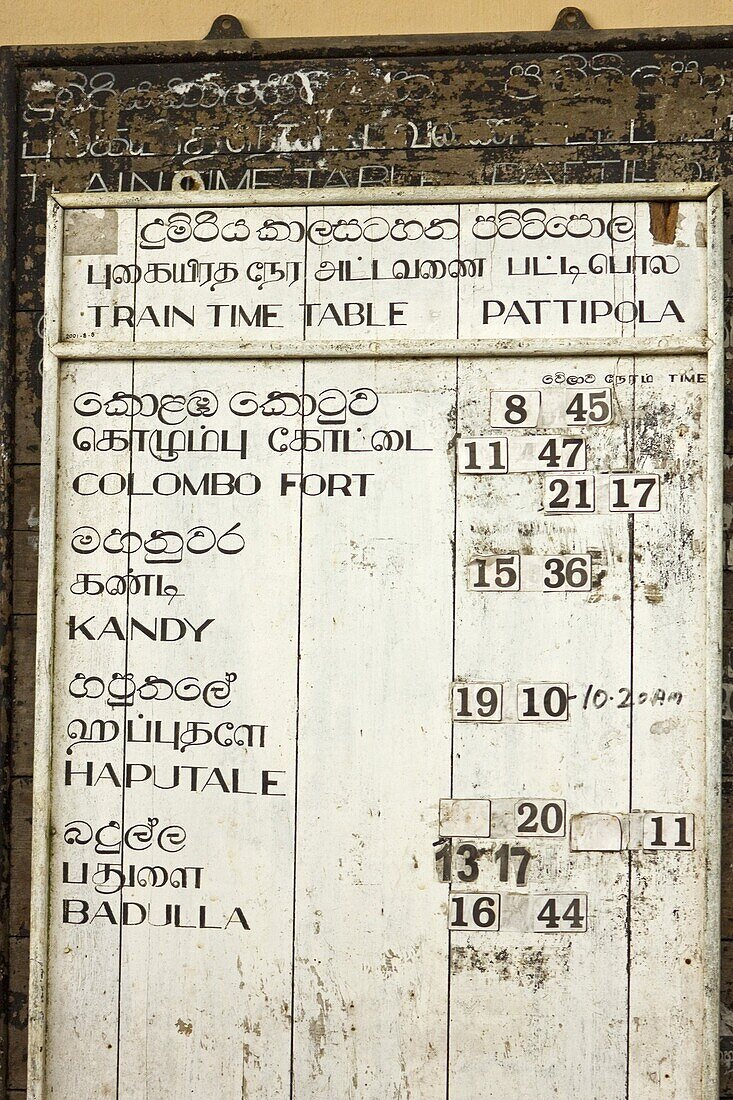 TRAIN TIME TABLE PATTI
දුම්රිය කාලසටහන පට්ටිපොල
புகையிரத நேர அட்டவணை பட்டிபொல
TRAIN TIME TABLE PATTIPOLA
2001-8-8
වේලාව நேரம் TIME
කොළඹ කොටුව 8 45
கொழும்பு கோட்டை 11 47
COLOMBO FORT 21 17
මහනුවර
கண்டி 15 36
KANDY
හපුතලේ 19 10 -10.20AM
ஹப்புதளே
HAPUTALE
බදුල්ල 20 11
பதுளை 13 17
BADULLA 16 44